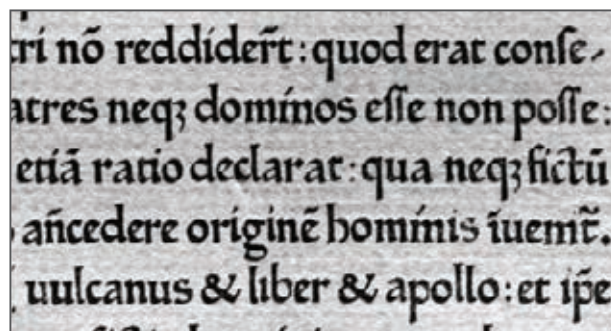 tri nõ reddider̃t : quod erat conſe-
atres neqꝫ dominos eſſe non poſſe :
etiã ratio declarat : qua neqꝫ fictũ
añcedere originẽ hominis ĩuem̃t.
uulcanus & liber & apollo : et ip̃e